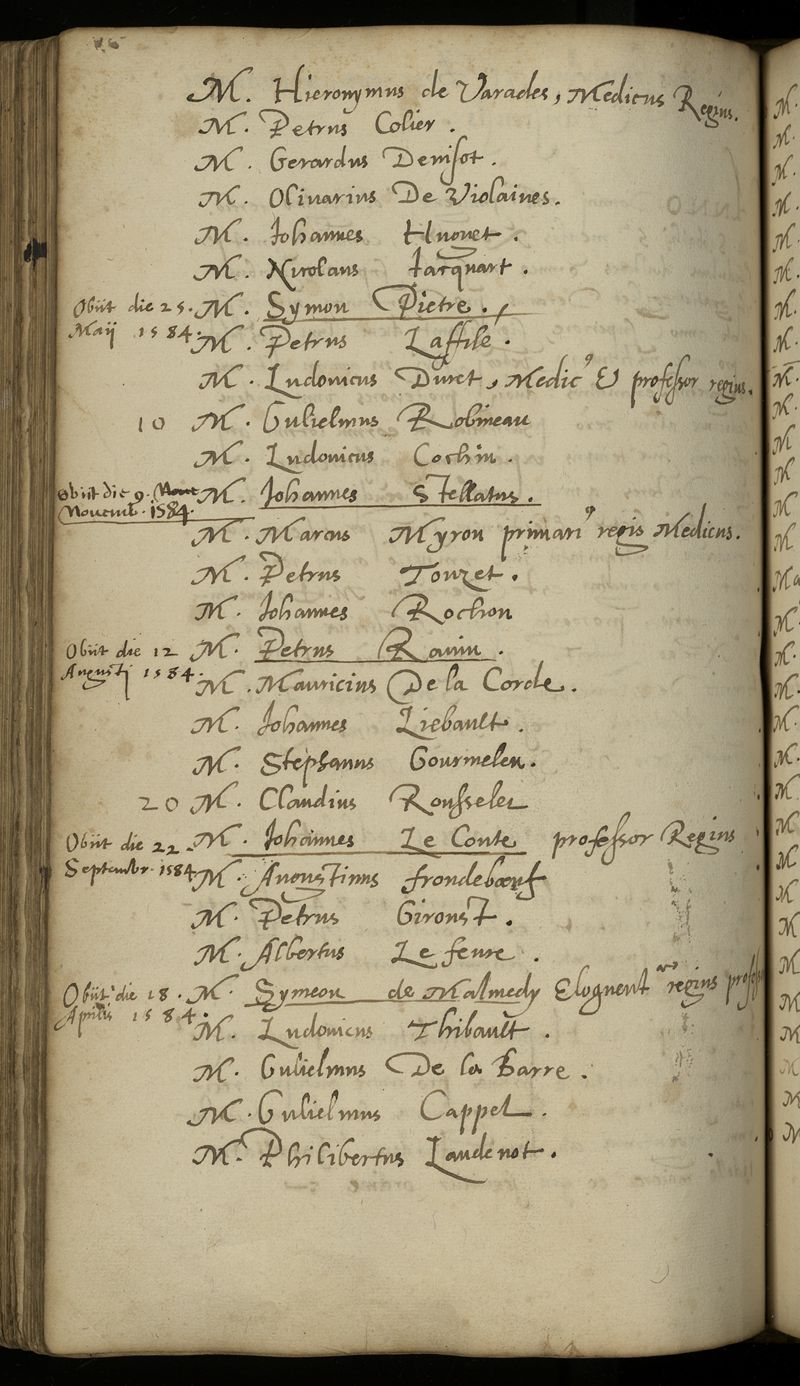 M. Hieronymus de Varades, Medicus Regius.
M. Petrus Colier.
M. Gerardus Denisot.
M. Olivarius De Violaines.
M. Johannes Huouet.
M. Nicolaus Jacquart.
Obiit die 25. M. Symon Pietre.
Maij 1584. M. Petrus Laffilé.
M. Ludovicus Duret, Medicꝰ & professor regius.
10 M. Gulielmus Robineau
M. Ludovicus Cochin.
obiit die 9. M. Johannes Stellatus.
Novemb. 1584. M. Marcus Myron primariꝰ regis Medicus.
M. Petrus Touzet.
M. Johannes Rochon
Obiit die 12 M. Petrus Ravin.
Augusti 1584. M. Mauricius De la Corde.
M. Johannes Liebault.
M. Stephanus Gourmelen.
20 M. Claudius Rousselet
Obiit die 22. M. Johannes Le Conte professor Regius
Septembr. 1584 M. Augustinus frondebœuf
M. Petrus Giroust.
M. Albertus Le feure.
Obiit die 18. M. Symeon de Malmedy Eloquent regius
Aprilis 1584. M. Ludovicus Thibault.
M. Gulielmus De la Barre.
M. Gulielmus Cappel.
M. Philibertus Laudenot.